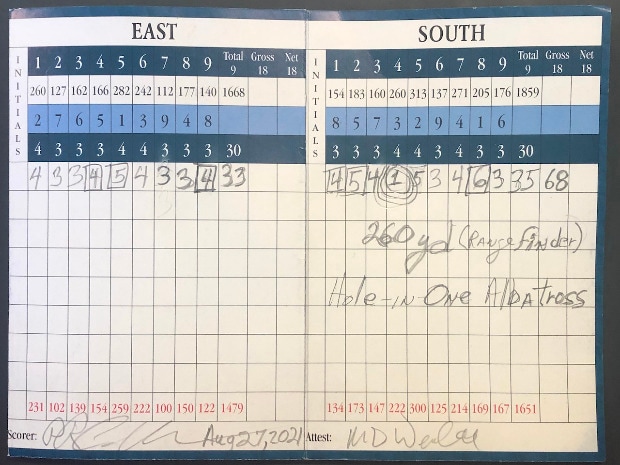 EAST
INITIALS 1 2 3 4 5 6 7 8 9 Total 9 Gross 18 Net 18
260 127 162 166 282 242 112 177 140 1668
2 7 6 5 1 3 9 4 8
4 3 3 3 4 4 3 3 3 30
4 3 3 4 5 4 3 3 4 33
231 102 139 154 259 222 100 150 122 1479
Scorer: Aug 27, 2021
SOUTH
INITIALS 1 2 3 4 5 6 7 8 9 Total 9 Gross 18 Net 18
154 183 160 260 313 137 271 205 176 1859
8 5 7 3 2 9 4 1 6
3 3 3 4 4 3 4 3 3 30
4 5 4 1 5 3 4 6 3 35 68
260 yd (RANGE FiNDER)
Hole-iN-ONE AlbATross
134 173 147 222 300 125 214 169 167 1651
Attest: MD